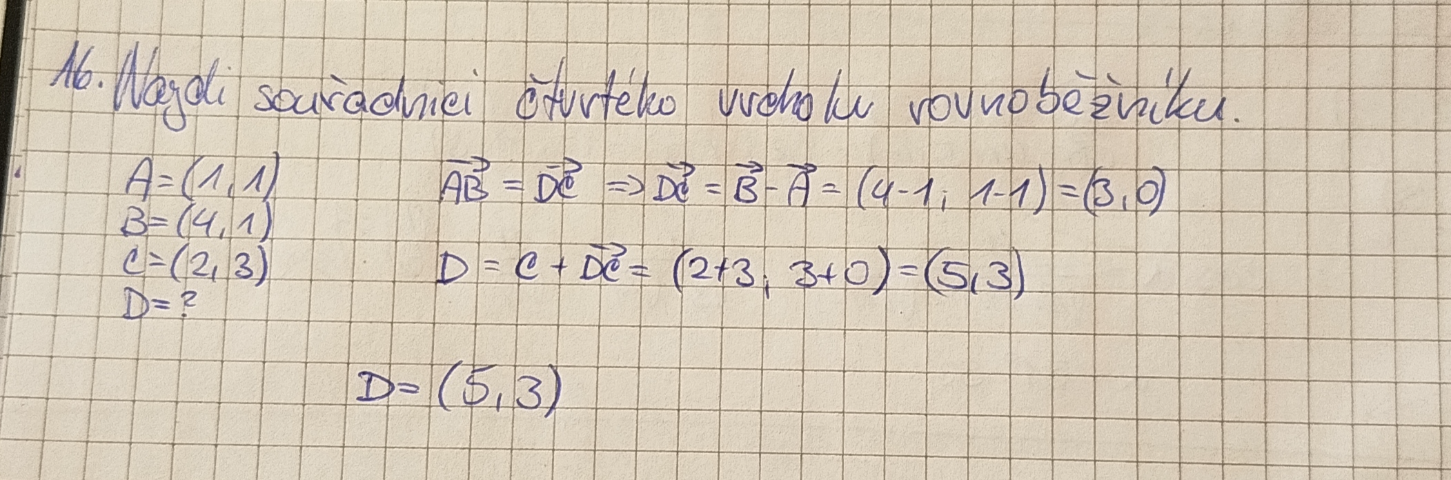 16. Najdi souřadnici čtvrtého vrcholu rovnoběžníku.
A=(1,1)
B=(4,1)
C=(2,3)
D=?
$\overrightarrow{AB} = \overrightarrow{DC} \Rightarrow \overrightarrow{DC} = \vec{B} - \vec{A} = (4-1; 1-1) = (3,0)$
$D = C + \overrightarrow{DC} = (2+3; 3+0) = (5,3)$
D=(5,3)